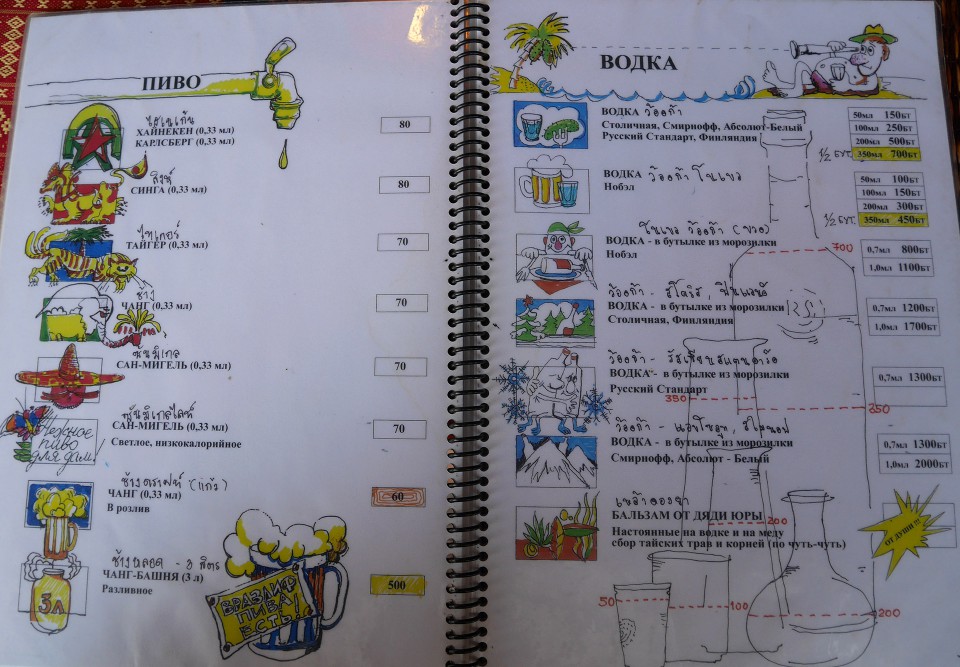 ПИВО
ไฮเนเก้น
ХАЙНЕКЕН (0,33 мл)
КАРЛСБЕРГ (0,33 мл)
80
สิงห์
СИНГА (0,33 мл)
80
ไทเกอร์
ТАЙГЕР (0,33 мл)
70
ช้าง
ЧАНГ (0,33 мл)
70
ซันมิเกล
САН-МИГЕЛЬ (0,33 мл)
70
ซันมิเกลไลท์
САН-МИГЕЛЬ (0,33 мл)
Светлое, низкокалорийное
70
Нежное
пиво
для дам!
ช้างดราฟท์ (แก้ว)
ЧАНГ (0,33 мл)
В розлив
60
3 ลิตร
ЧАНГ-БАШНЯ (3 л)
Разливное
500
3л
В РАЗЛИВ
ПИВА
ЕСТЬ!
ВОДКА
ВОДКА ว้อดก้า
Столичная, Смирнофф, Абсолют-Белый
Русский Стандарт, Финляндия
50мл 150БТ
100мл 250БТ
200мл 500БТ
1/2 БУТ. 350мл 700БТ
ВОДКА ว้อดก้า โนเบล
Нобэл
50мл 100БТ
100мл 150БТ
200мл 300БТ
1/2 БУТ. 350мл 450БТ
โนเบล ว้อดก้า (ขวด)
ВОДКА - в бутылке из морозилки
Нобэл
700
0,7мл 800БТ
1,0мл 1100БТ
ВОДКА - в бутылке из морозилки
Столичная, Финляндия
0,7мл 1200БТ
1,0мл 1700БТ
ว้อดก้า - รัสเซียนสแตนดาร์ด
ВОДКА - в бутылке из морозилки
Русский Стандарт
0,7мл 1300БТ
350
350
ВОДКА - в бутылке из морозилки
Смирнофф, Абсолют - Белый
0,7мл 1300БТ
1,0мл 2000БТ
เหล้าดองยา
БАЛЬЗАМ ОТ ДЯДИ ЮРЫ
Настоянные на водке и на меду
сбор тайских трав и корней (по чуть-чуть)
ОТ ДУШИ !!!
200
50
100
200